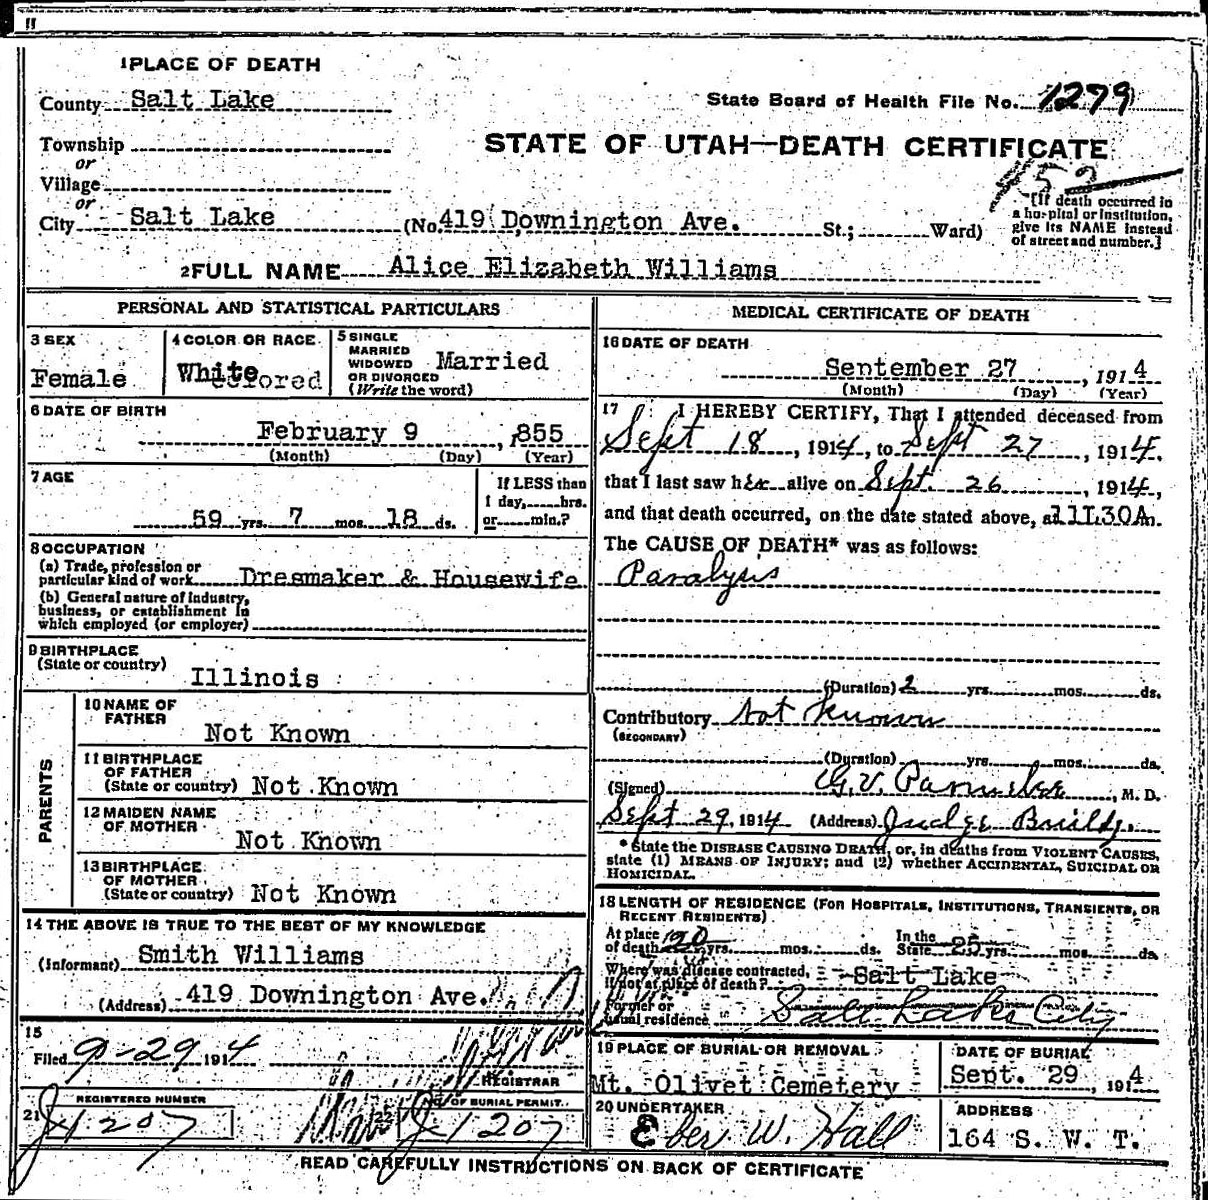 1 PLACE OF DEATH
County Salt Lake
State Board of Health File No. 1279
Township
or
Village
or
City Salt Lake
STATE OF UTAH—DEATH CERTIFICATE
52
(No. 419 Downington Ave. St.; Ward)
[If death occurred in
a hospital or institution,
give its NAME instead
of street and number.]
2 FULL NAME Alice Elizabeth Williams
PERSONAL AND STATISTICAL PARTICULARS
3 SEX
Female
4 COLOR OR RACE
White
5 SINGLE
MARRIED
WIDOWED
OR DIVORCED
(Write the word)
Married
6 DATE OF BIRTH
February 9, 1855
(Month) (Day) (Year)
7 AGE
59 yrs. 7 mos. 18 ds.
If LESS than
1 day, hrs.
or min.?
8 OCCUPATION
(a) Trade, profession or
particular kind of work Dresmaker & Housewife
(b) General nature of industry,
business, or establishment in
which employed (or employer)
9 BIRTHPLACE
(State or country)
Illinois
PARENTS
10 NAME OF
FATHER
Not Known
11 BIRTHPLACE
OF FATHER
(State or country) Not Known
12 MAIDEN NAME
OF MOTHER
Not Known
13 BIRTHPLACE
OF MOTHER
(State or country) Not Known
14 THE ABOVE IS TRUE TO THE BEST OF MY KNOWLEDGE
(Informant) Smith Williams
(Address) 419 Downington Ave.
15
Filed 9-29 1914
REGISTRAR
REGISTERED NUMBER
21 J1207
22 NO. OF BURIAL PERMIT
J1207
MEDICAL CERTIFICATE OF DEATH
16 DATE OF DEATH
September 27, 1914
(Month) (Day) (Year)
17 I HEREBY CERTIFY, That I attended deceased from
Sept 18, 1914, to Sept 27, 1914,
that I last saw her alive on Sept. 26, 1914,
and that death occurred, on the date stated above, at 11L30A m.
The CAUSE OF DEATH* was as follows:
Paralysis
(Duration) 2 yrs. mos. ds.
Contributory Not Known
(SECONDARY)
(Duration) yrs. mos. ds.
(Signed) G. V. , M. D.
Sept 29, 1914 (Address) Judge Buildg.
* State the DISEASE CAUSING DEATH, or, in deaths from VIOLENT CAUSES,
state (1) MEANS OF INJURY; and (2) whether ACCIDENTAL, SUICIDAL OR
HOMICIDAL.
18 LENGTH OF RESIDENCE (FOR HOSPITALS, INSTITUTIONS, TRANSIENTS, OR
RECENT RESIDENTS)
At place
of death 20 yrs. mos. ds. In the
State 25 yrs. mos. ds.
Where was disease contracted,
if not at place of death? Salt Lake
Former or
usual residence Salt Lake City
19 PLACE OF BURIAL OR REMOVAL
Mt. Olivet Cemetery
DATE OF BURIAL
Sept. 29, 1914
20 UNDERTAKER
Eber W. Hall
ADDRESS
164 S. W. T.
READ CAREFULLY INSTRUCTIONS ON BACK OF CERTIFICATE